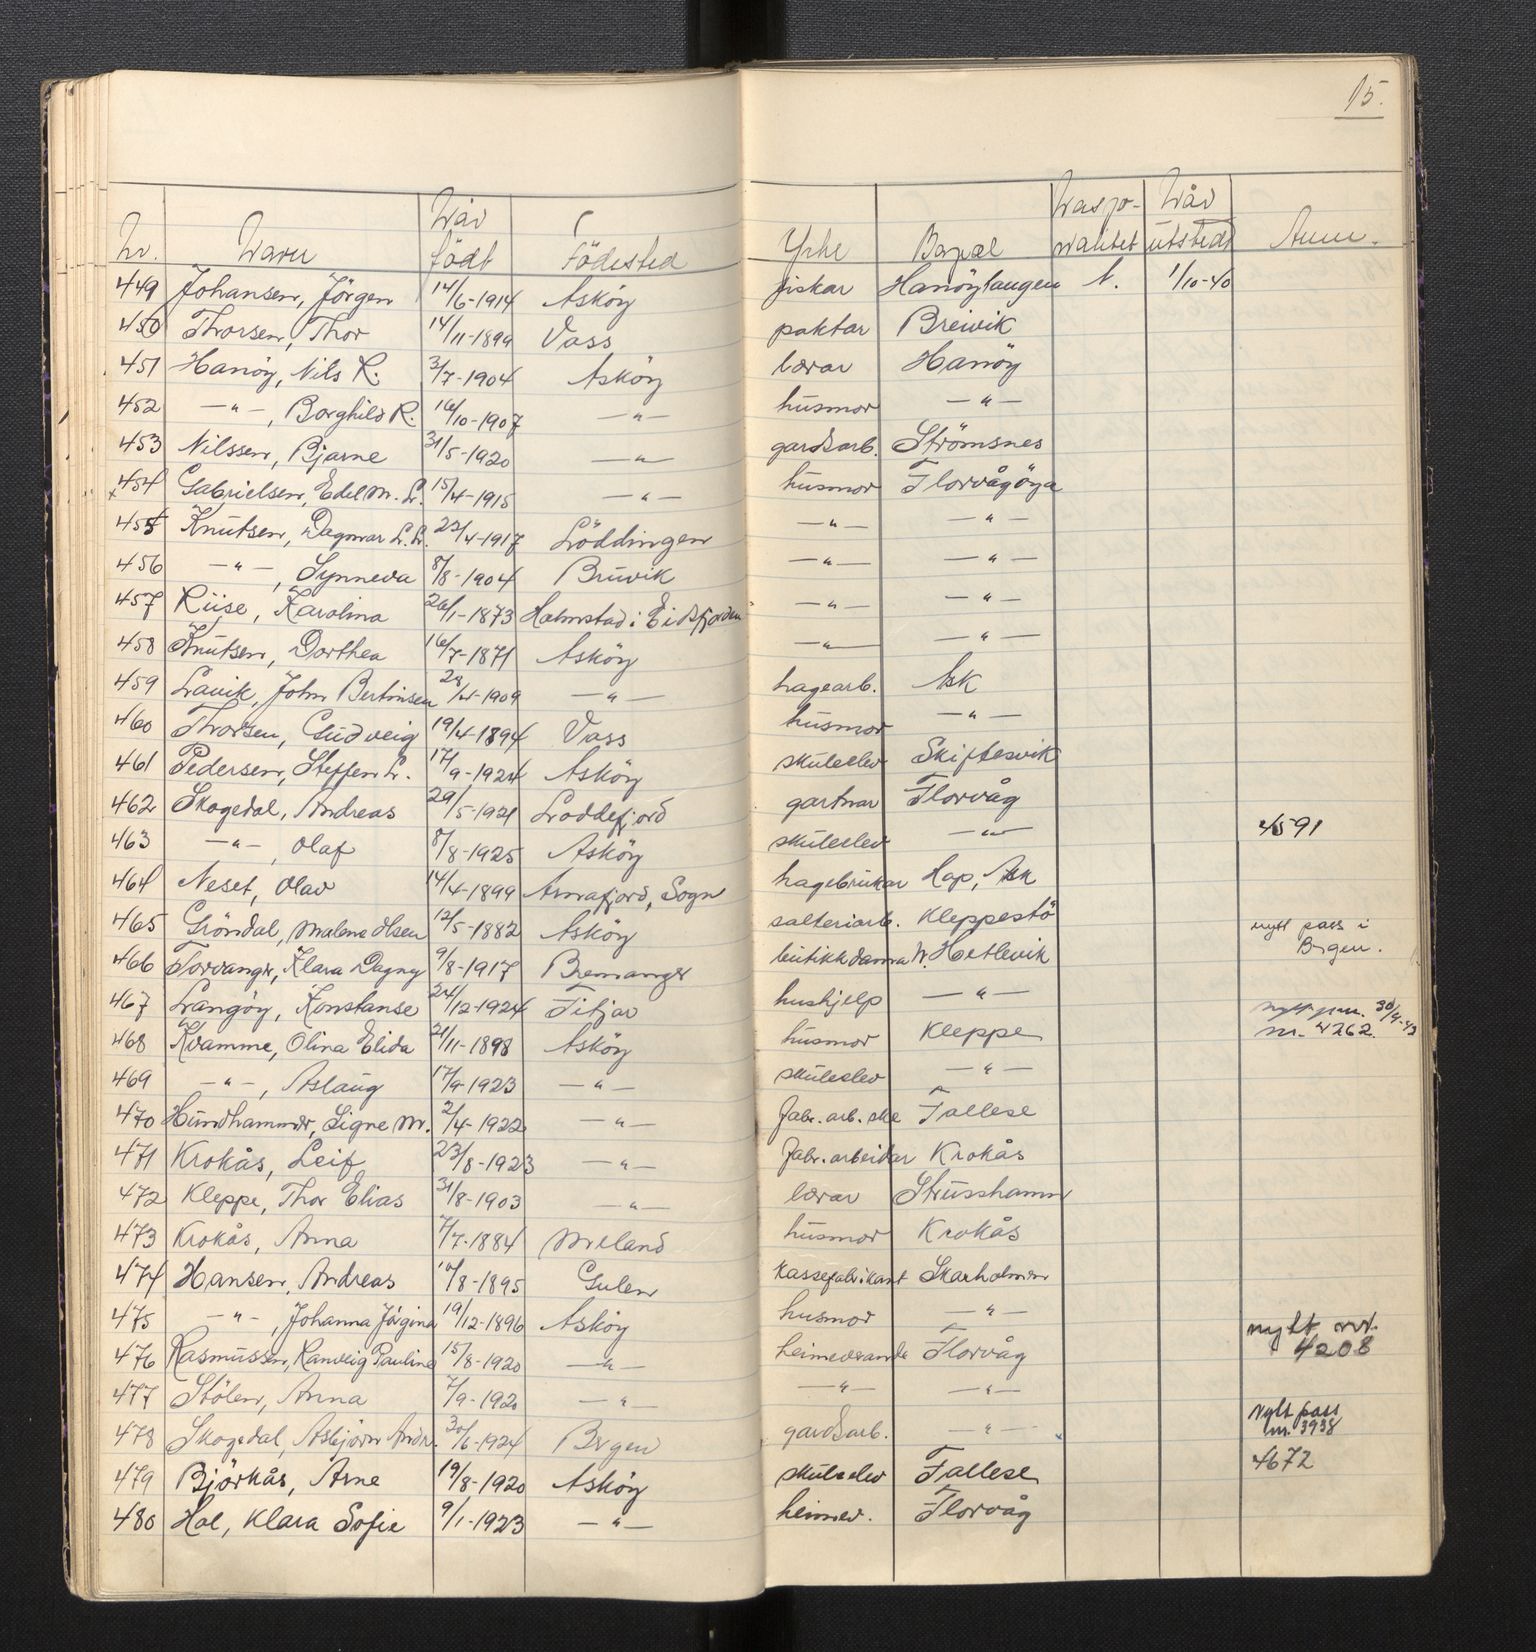 15.
Nr. Navn Når födt Födested Yrke Bopæl Nasjonalitet Når utstedt Anm.
449 Johansen, Jörgen 14/6-1914 Asköy fiskar Hanöytangen N. 1/10-40
450 Thorsen, Thor 14/11-1899 Voss paktar Breivik
451 Hanöy, Nils R. 3/7-1904 Asköy lærar Hanöy
452 —"—, Borghild R. 16/10-1907 —"— husmor —"—
453 Nilssen, Bjarne 31/5-1920 —"— gardsarb. Strömsnes
454 Gabrielsen, Edel M. L. 15/4-1915 —"— husmor Florvågöya
455 Knutsen, Dagmar L. L. 22/4-1917 Löddingen —"— —"—
456 —"—, Synneva 8/8-1904 Bruvik —"— —"—
457 Riise, Karolina 26/1-1873 Halmstad i Eidsfjorden —"— —"—
458 Knutsen, Dorthea 16/7-1871 Asköy —"— —"—
459 Lavik, John Bertinsen 28/4-1909 —"— hagearb. Ask
460 Thorsen, Gudveig 19/4-1894 Voss husmor —"—
461 Pedersen, Steffen L. 17/9-1924 Asköy skuleelev Skiftesvik
462 Skogedal, Andreas 29/5-1921 Loddefjord gartnar Florvåg
463 —"—, Olaf 8/8-1925 Asköy skuleelev —"— 4591
464 Neset, Olav 14/4-1899 Arnafjord, Sogn hagebrukar Hop, Ask
465 Gröndal, Malena Olsen 12/5-1882 Asköy salteriarb. Kleppestö nytt pass i Bergen.
466 Torvanger, Klara Dagny 9/8-1917 Bremanger butikkdama N. Hetlevik
467 Langöy, Konstanse 24/12-1924 Fitjar hushjelp —"— nytt 30/4-43
468 Kvamme, Olina Elida 21/11-1898 Asköy husmor Kleppe nr. 4262.
469 —"—, Aslaug 17/9-1923 —"— skuleelev —"—
470 Hundhammer, Signe M. 2/4-1922 —"— fabr. arb. ske Follese
471 Krokås, Leif 23/8-1923 —"— fabr. arbeidar Krokås
472 Kleppe, Thor Elias 31/8-1903 —"— lærar Strusshamn
473 Krokås, Anna 7/7-1884 Meland husmor Krokås
474 Hansen, Andreas 10/8-1895 Gulen kassefabrikant Skarholmen
475 —"—, Johanna Jörgina 19/12-1896 Asköy husmor —"—
476 Rasmussen, Ranveig Pauline 15/8-1920 —"— heimeverande Florvåg nytt nr. 4208
477 Stölen, Anna 7/9-1920 —"— —"— —"—
478 Skogedal, Asbjörn Andr. 30/6-1924 Bergen gardsarb. —"— Nytt pass nr. 3938
479 Björkås, Arne 19/8-1920 Asköy skuleelev Follese 4672
480 Hol, Klara Sofie 9/1-1923 —"— heimev. Florvåg